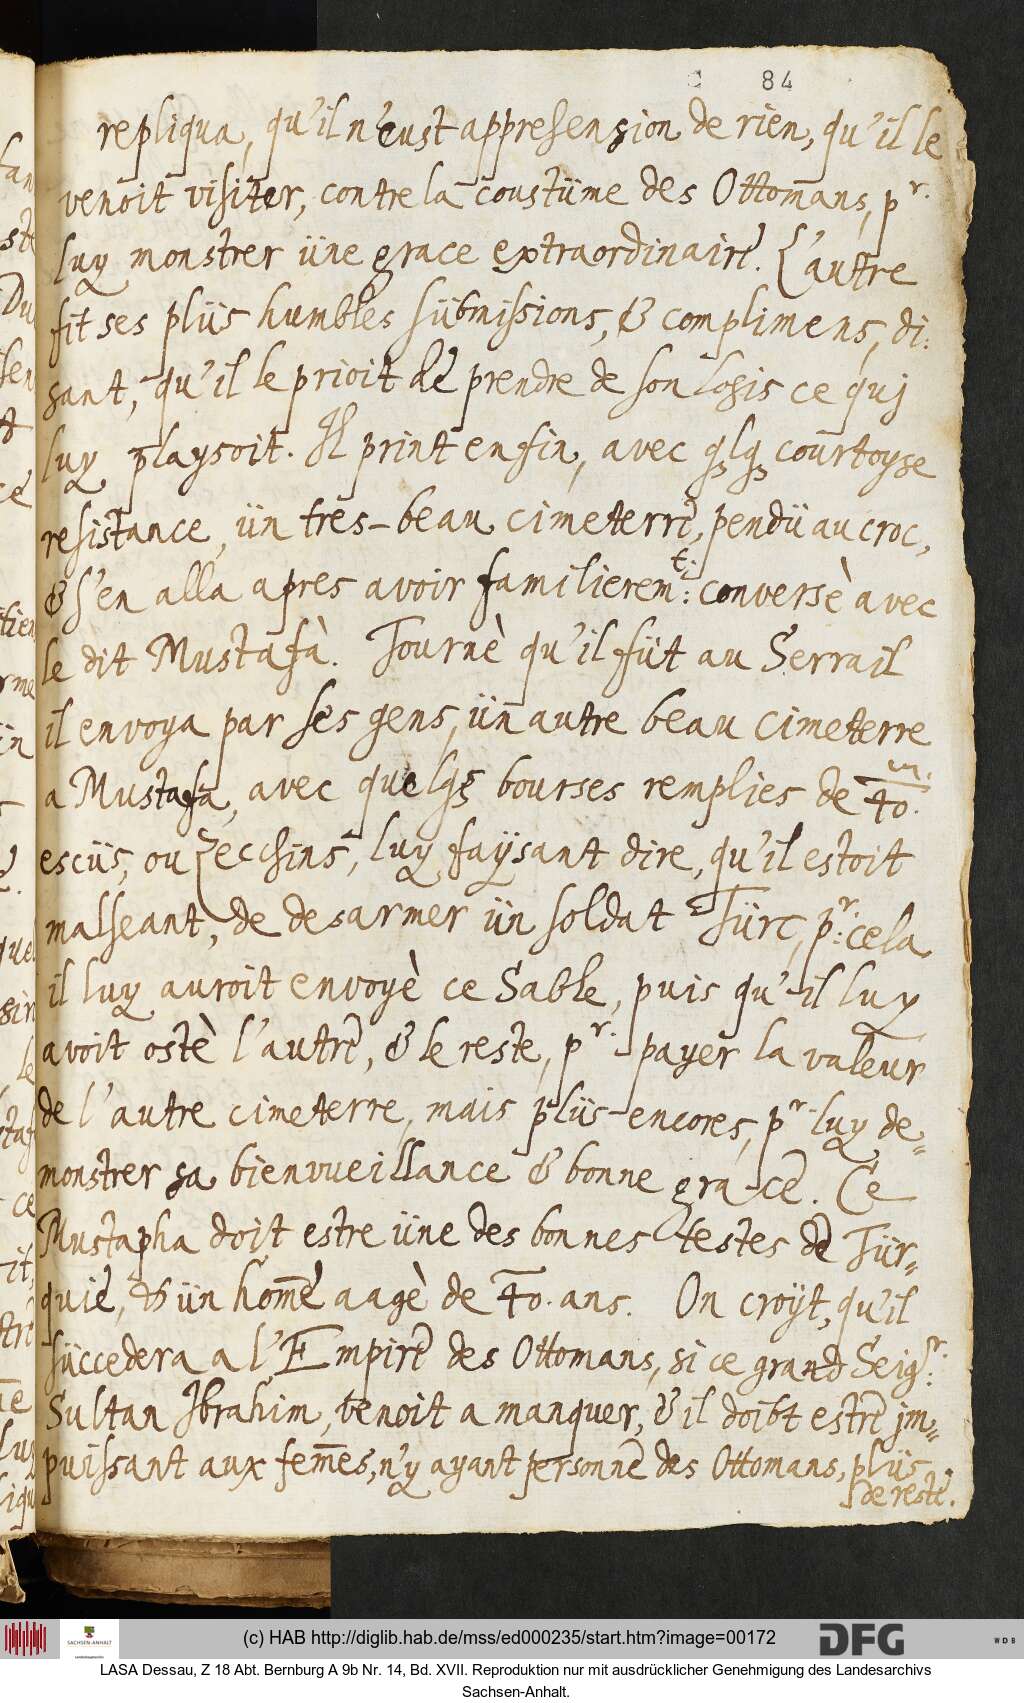 84
repliqua, qu'il n'eust apprehension de rien, qu'il le
venoit visiter, contre la coustüme des Ottomans, pr.
luy monstrer üne grace extraordinaire. L'autre
fit ses plüs humbles sübmissions, & complimens, di:
sant, qu'il le prioit de prendre de son logis ce quj
luy playsoit. Il print enfin, avec qlq courtoyse
resistance, ün tres-beau cimeterre, pendü au croc,
& s'en alla apres avoir familierem:t conversè avec
le dit Mustafà. Tournè qu'il füt au Serrail
il envoya par ses gens, ün autre beau cimeterre
a Mustafa, avec quelqs bourses remplies de 40.m.
escüs, ou Zecchins, luy faÿsant dire, qu'il estoit
malseant, de desarmer ün soldat Türc, p:r cela
il luy auroit envoyè ce Sable, puis qu'il luy
avoit ostè l'autre, & le reste, pr. payer la valeur
de l'autre cimeterre, mais plüs encores, pr luy de=
monstrer sa bienvueillance & bonne grace. Ce
Mustapha doit estre üne des bonnes testes de Tür=
quie, & ün hom̄e aagè de 40. ans. On croÿt, qu'il
süccedera a l'Empire des Ottomans, si ce grand Seig:r
Sultan Ibrahim, venoit a manquer, & il doibt estre jm=
puissant aux fem̄es, n'y ayant personne des Ottomans, plüs
de reste.
(c) HAB http://diglib.hab.de/mss/ed000235/start.htm?image=00172
SACHSEN-ANHALT
DFG
WDB
LASA Dessau, Z 18 Abt. Bernburg A 9b Nr. 14, Bd. XVII. Reproduktion nur mit ausdrücklicher Genehmigung des Landesarchivs
Sachsen-Anhalt.